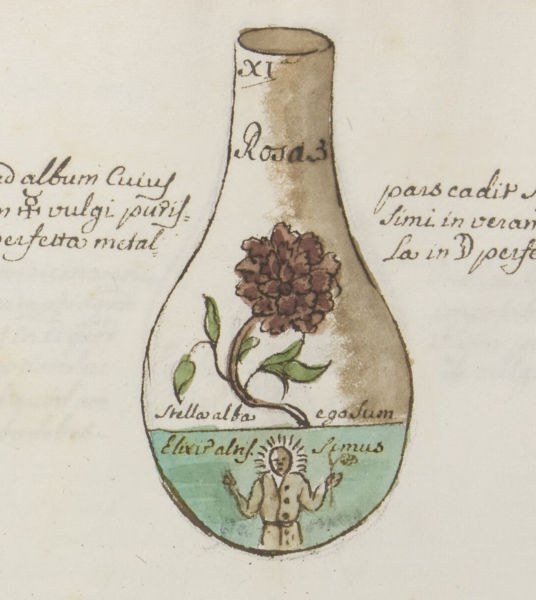 XI
Rosa 3
ad album Cuius
☿ vulgi puris-
perfetta metal-
pars cadit
simi in veram
La in ☽ perfe
Stella alba ego Sum
Elixir altis. Simus